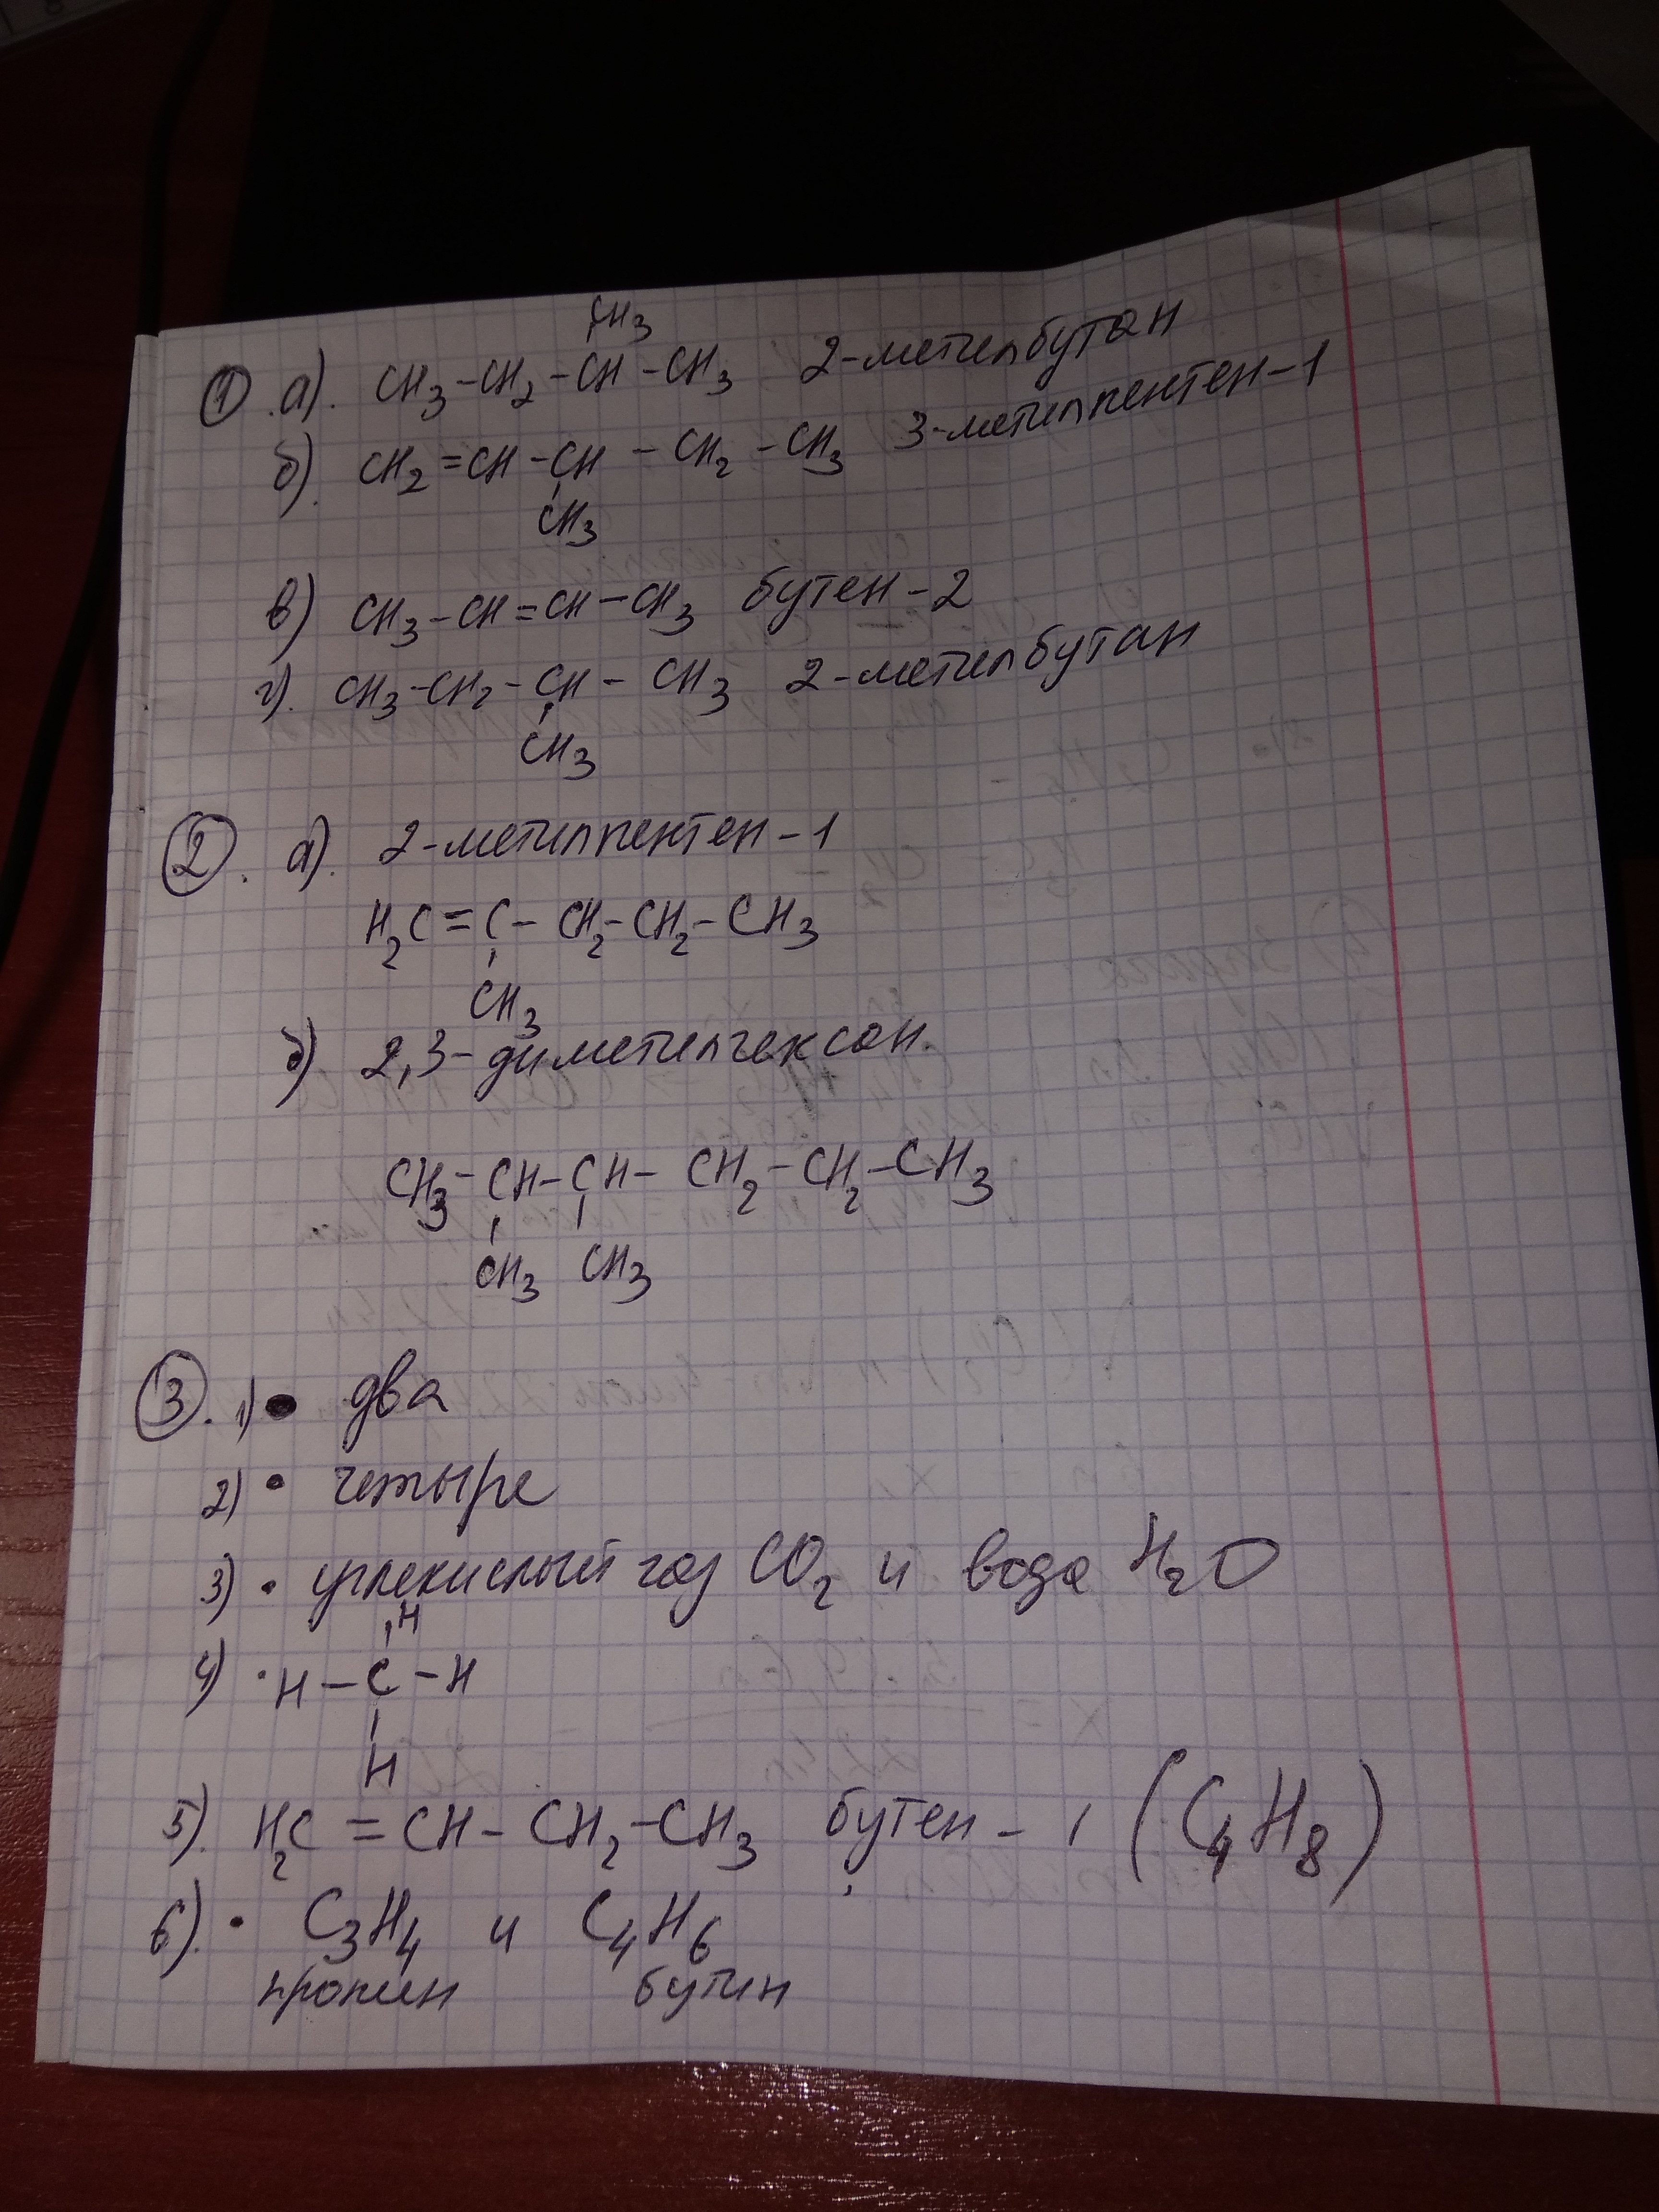 CH3
① а). CH3-CH2-CH-CH3 2-метилбутан
б). CH2=CH-CH-CH2-CH3 3-метилпентен-1
CH3
в) CH3-CH=CH-CH3 бутен-2
г). CH3-CH2-CH-CH3 2-метилбутан
CH3
②. а). 2-метилпентен-1
H2C=C-CH2-CH2-CH3
CH3
б) 2,3-диметилгексан.
CH3-CH-CH-CH2-CH2-CH3
CH3 CH3
③. 1) • два
2) • четыре
3) • углекислый газ CO2 и вода H2O
H
4) • H-C-H
H
5). H2C=CH-CH2-CH3 бутен-1 (C4H8)
6). • C3H4 и C4H6
пропин бутин